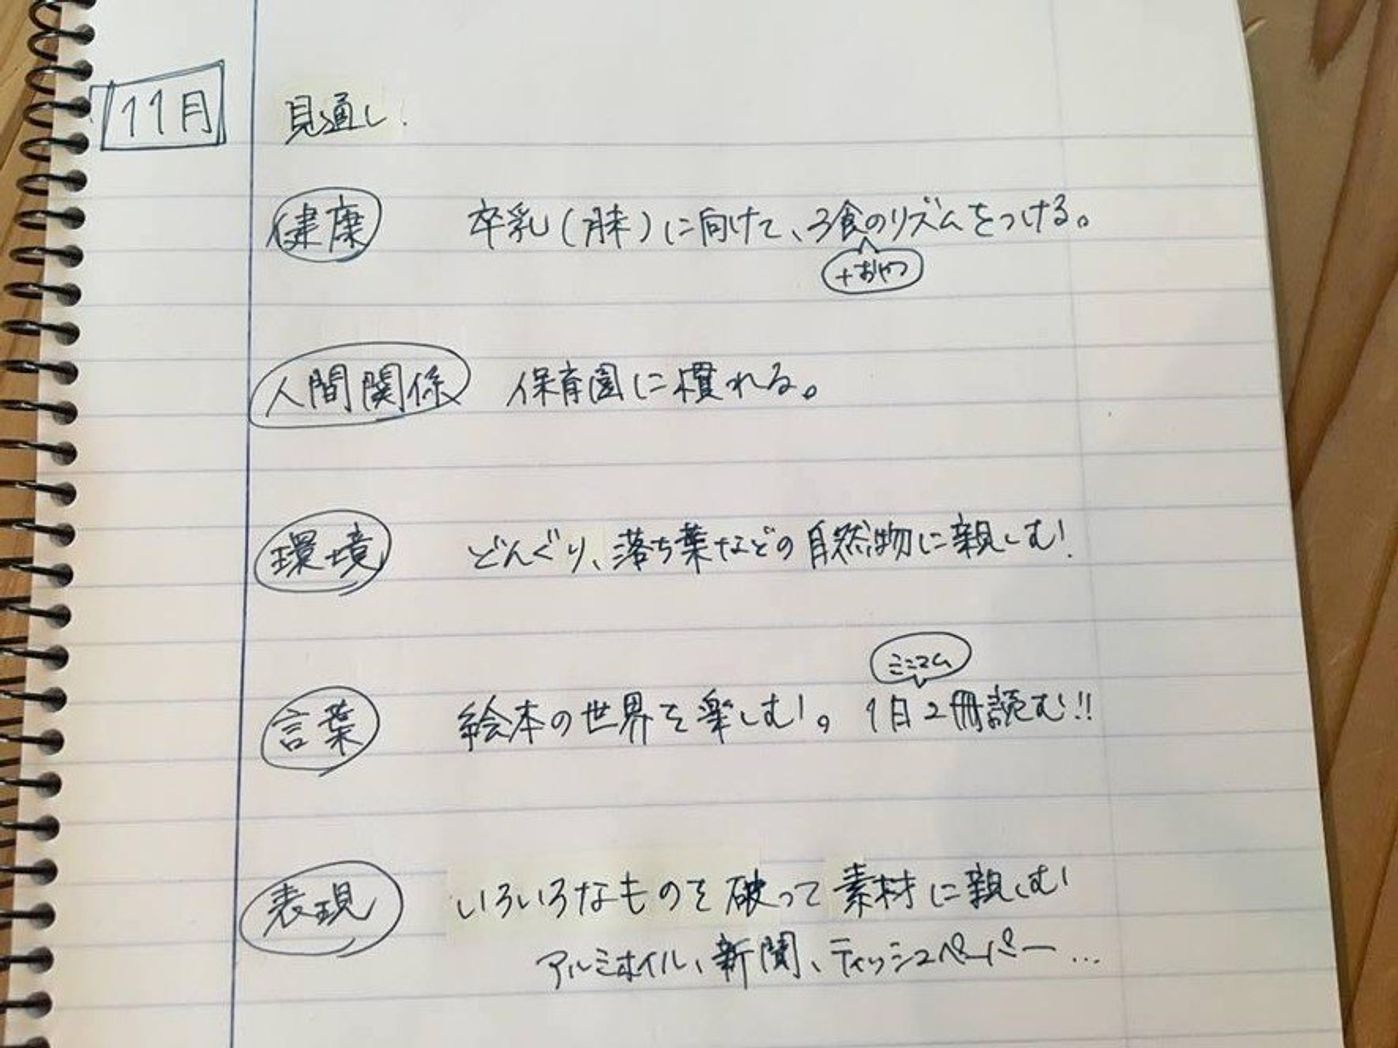 11月
見通し.
健康 卒乳(月末)に向けて、3食のリズムをつける。
+おやつ
人間関係 保育園に慣れる。
環境 どんぐり、落ち葉などの自然物に親しむ!
ミニマム
言葉 絵本の世界を楽しむ!。 1日2冊読む!!
表現 いろいろなものを破って素材に親しむ!
アルミホイル、新聞、ティッシュペーパー…